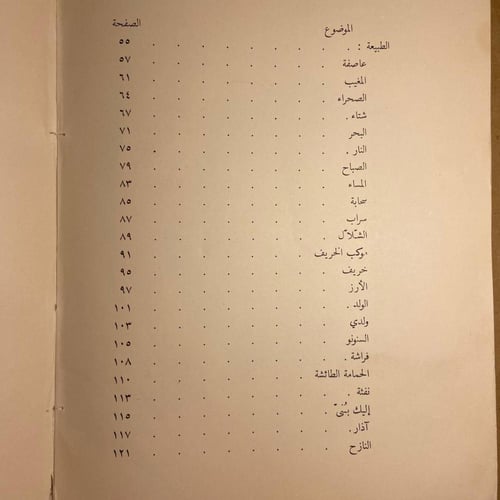 الموضوع الصفحة
الطبيعة : . . . . . . . ٥٥
عاصفة . . . . . . . ٥٧
المغيب . . . . . . . ٦١
الصحراء . . . . . . . ٦٤
شتاء . . . . . . . ٦٧
البحر . . . . . . . ٧١
النار . . . . . . . ٧٥
الصباح . . . . . . . ٧٩
المساء . . . . . . . ٨٣
سحابة . . . . . . . ٨٥
سراب . . . . . . . ٨٧
الشلاّل . . . . . . . ٨٩
موكب الخريف . . . . . . ٩١
خريف . . . . . . . ٩٥
الأرز . . . . . . . ٩٧
الولد . . . . . . . ١٠١
ولدي . . . . . . . ١٠٣
السنونو . . . . . . . ١٠٥
فراشة . . . . . . . ١٠٨
الحمامة الطائشة . . . . . . ١١٠
نفثة . . . . . . . ١١٣
إليك بُنيّ . . . . . . . ١١٥
آذار . . . . . . . ١١٧
النازح . . . . . . . ١٢١